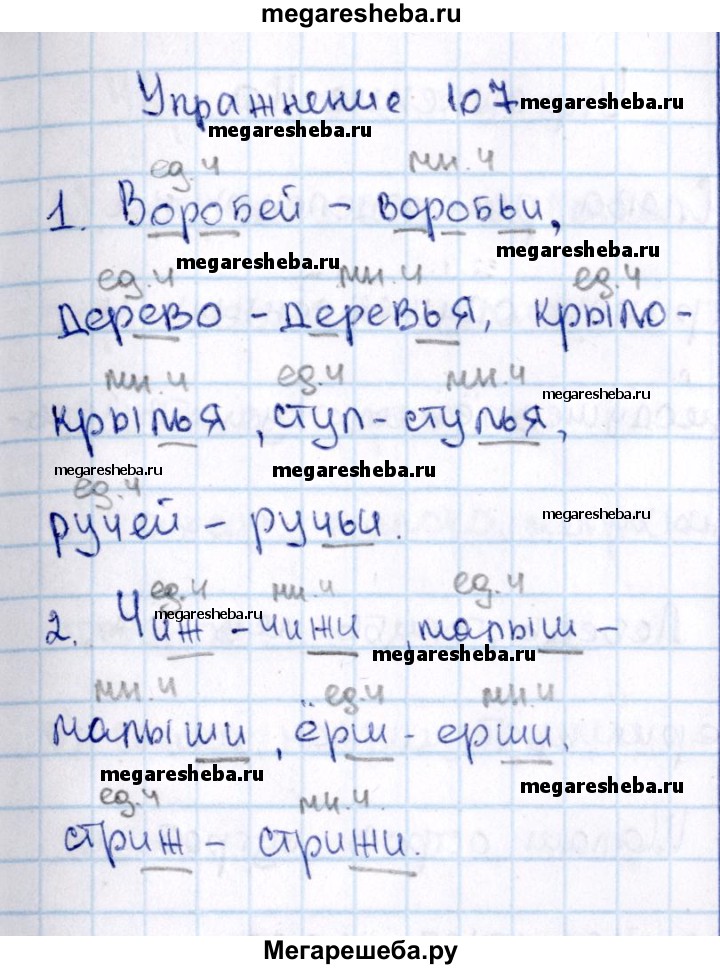 megaresheba.ru
Упражнение 107 megaresheba.ru
megaresheba.ru
ед.ч мн.ч
1. Воробей - воробьи,
megaresheba.ru megaresheba.ru
ед.ч мн.ч ед.ч
дерево - деревья, крыло-
мн.ч ед.ч мн.ч megaresheba.ru
крылья, стул - стулья,
megaresheba.ru megaresheba.ru megaresheba.ru
ед.ч
ручей - ручьи. megaresheba.ru
ед.ч мн.ч ед.ч
megaresheba.ru
2. Чиж - чижи, малыш -
megaresheba.ru
мн.ч ед.ч мн.ч
малыши, ёрш - ерши,
megaresheba.ru megaresheba.ru
ед.ч мн.ч.
стриж - стрижи.
Мегарешеба.ру